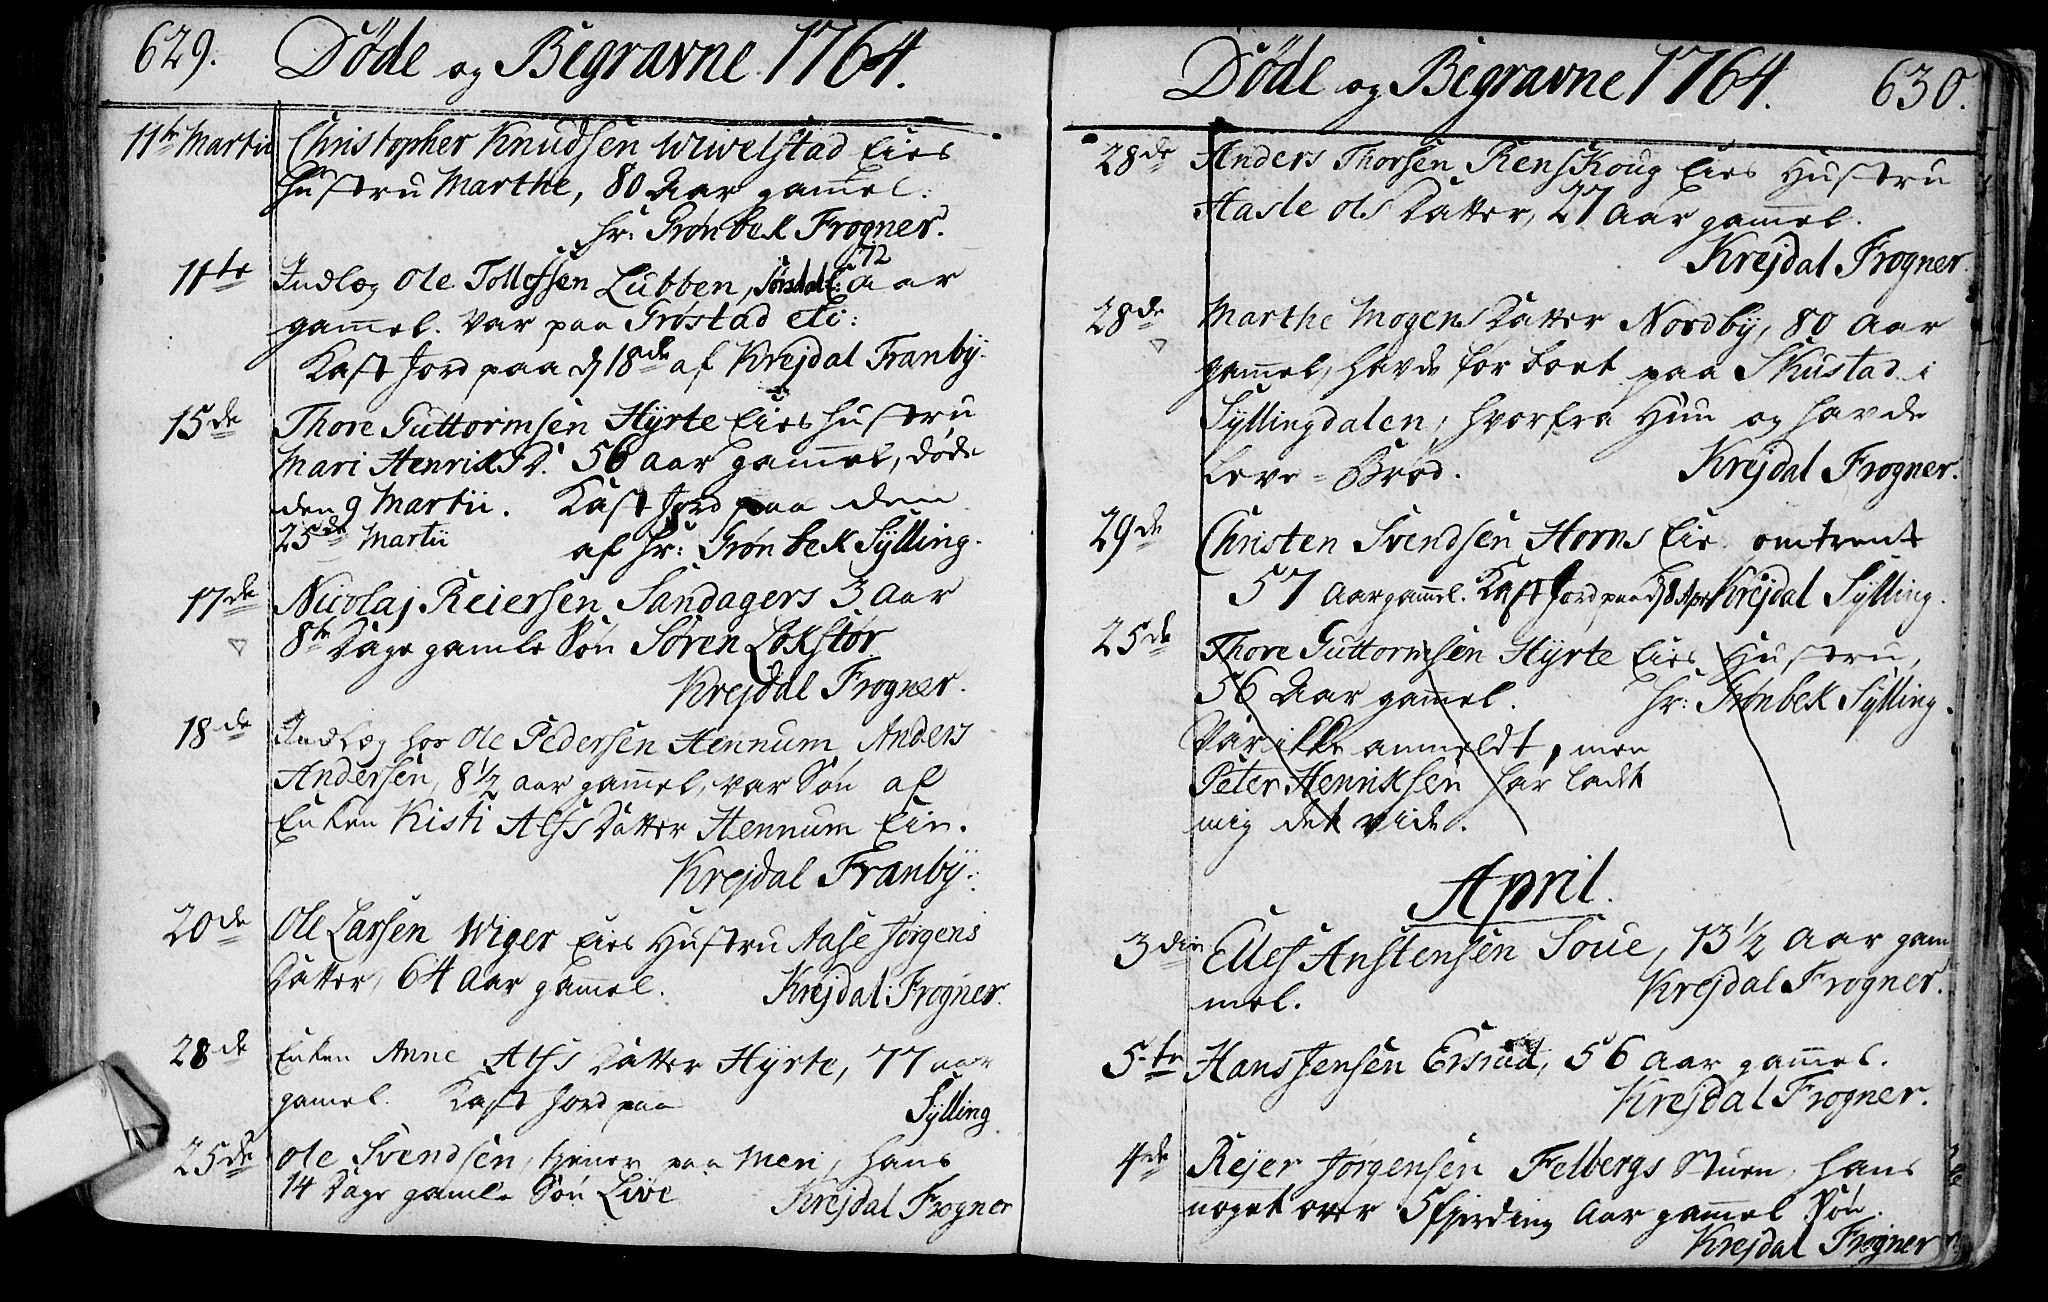 629. Döde og Begravne 1764.
11te Martii Christopher Knudsen Wiwelstad Eies
Hustru Marthe, 80 Aar gam̄el.
Hr: Grönbek Frogner.
72
11te Indlæg Ole Tollefsen Lubben, Aar
gam̄el. Var paa Gröstad
Kast Jord paa d 18de af Krejdal Franbÿ.
15de Thore Guttormsen Hÿrte Eies Hustru
Mari Henriks D. 56 Aar gam̄el, döde
den 9 Martii. Kast Jord paa den
25de Martii af Hr: Grönbek Sÿlling.
17de Nicolaj Reiersen Sandagers 3 Aar
8te Dage gamle Sön Sören Lokstör
Krejdal Frogner.
18de Indlæg hos Ole Pedersen Hennum Anders
Andersen, 8 1/2 aar gam̄el, var Sön af
Enken Kisti Alfs Datter Hennum Eie.
Krejdal Franbÿ.
20de Ole Larsen Wiger Eies Hustru Aase Jörgens
Datter, 64 Aar gam̄el. Krejdal Frogner.
28de Enken Anne Alfs Datter Hÿrte, 77 aar
gamel. Kast Jord paa Sÿlling
25de Ole Svendsen, tjener paa Meri, hans
14 Dage gamle Sön Live Krejdal Frogner
Döde og Begravne 1764. 630.
28de Anders Thorsen Renskoug Eies Hustru
Aasle Ols Datter, 27 Aar gam̄el.
Krejdal Frogner.
28de Marthe Mogens Datter Nordbÿ, 80 Aar
gam̄el, havde før boet paa Skustad i
Sÿllingdalen, hvorfra Hun og havde
Leve-Bröd. Krejdal Frogner.
29de Christen Svendsen Horns Eie omtrent
57 Aar gam̄el. Kast Jord paa d 8 Apr Krejdal Sÿlling.
25de Thore Guttormsen Hÿrte Eies Hustru,
56 Aar gam̄el. Hr: Grönbek Sÿlling.
Var ikke anmeldt, men
Peter Henriksen har ladt
mig det vide.
April.
3die Ellef Anstensen Soue, 13 1/2 Aar gam
mel. Krejdal Frogner.
5te Hans Jensen Ersrud, 56 Aar gam̄el.
Krejdal Frogner.
4de Rejer Jörgensen Felbergs Stuen, hans
noget over 5 fjerding Aar gam̄el Sön.
Krejdal Frogner